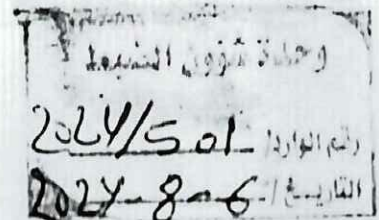 وحدة شؤون
رقم الوارد/ 2024/501
التاريخ/ 2024-8-6